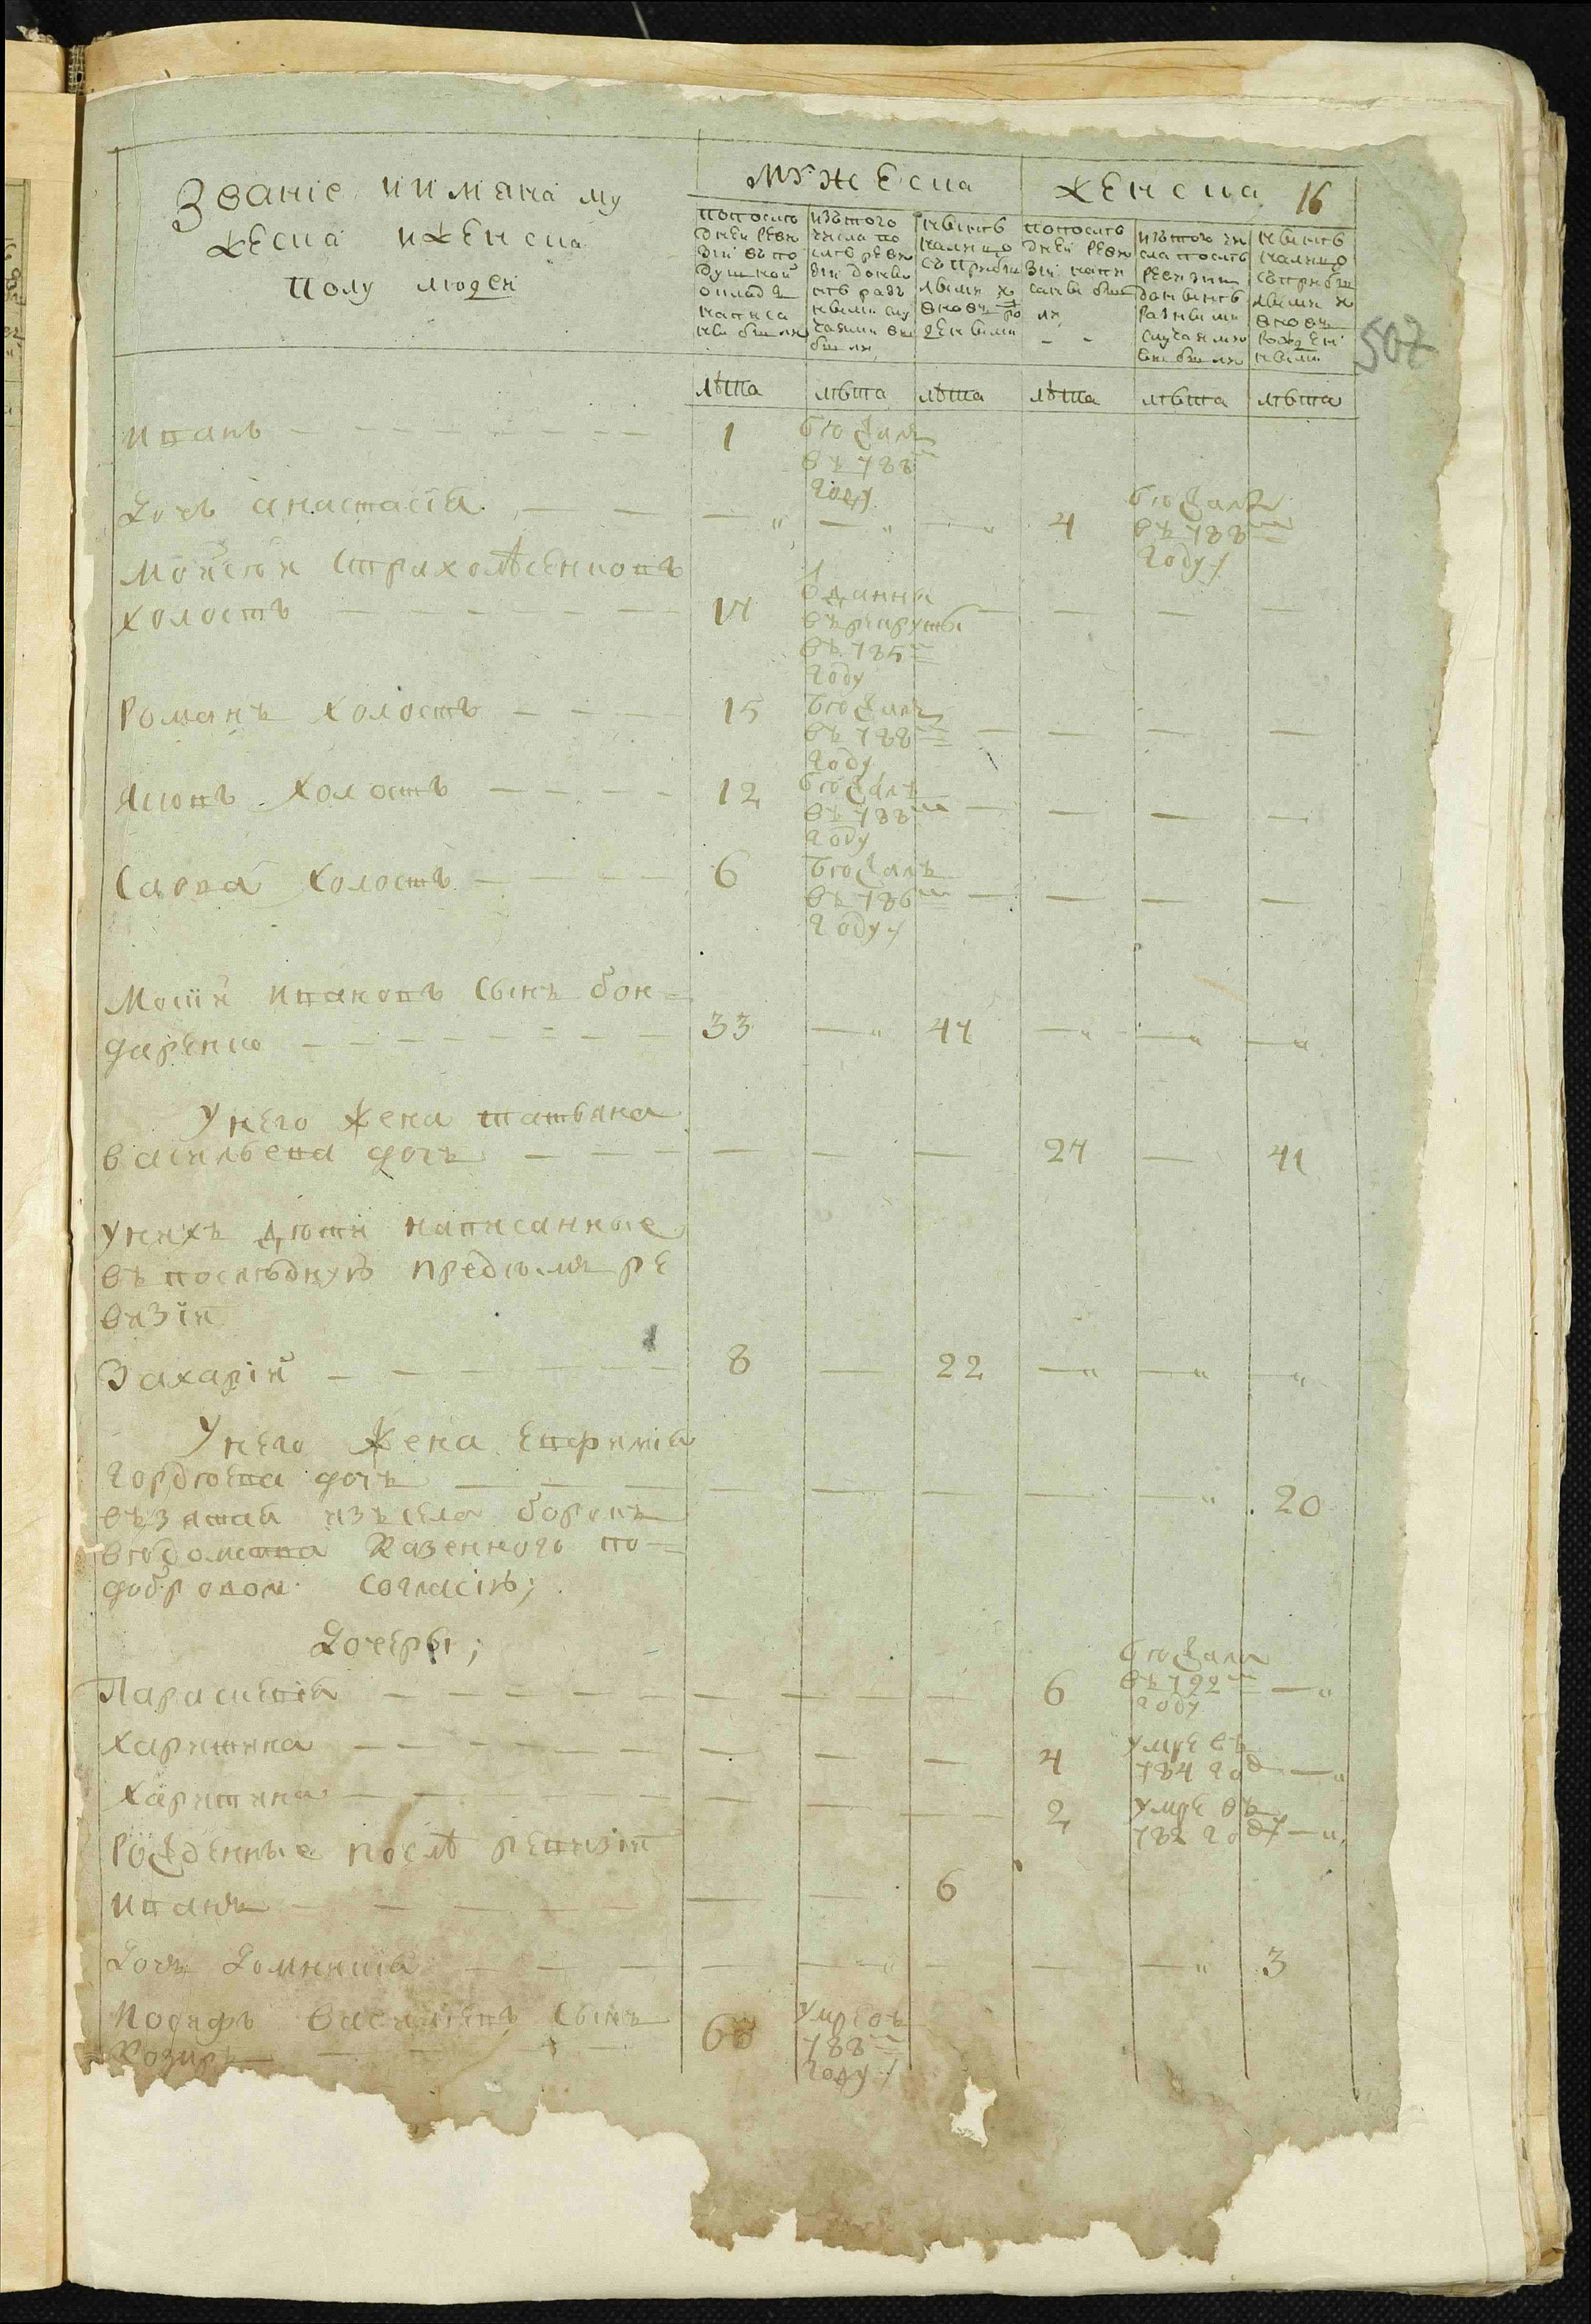 Званіе и имяна му
жеска и женска
полу людей
мужеска
женска 16
507
попослѣ
дней реви
зіи въ по
душной
окладъ
написа
ны были
изътого
числа по
слѣ реви
зіи донын
нѣ раз
ными слу
чаями вы
были
нынѣ
налицо
съ прибы
лыми и
вновь ро
жденными
попослѣ
дней реви
зіи напи
саны был
ли
изътого чи
сла послѣ
ревизіи
донынѣ
разными
случаями
выбыли
нынѣ
налицо
съприбы
лыми и
вновь
рожден
ными
лѣта лѣта лѣта лѣта лѣта лѣта
иванъ 1 бѣжалъ
въ 788
году
дочь анастасія 4 бѣжала
въ 788
году
Мойсѣй
холостъ 17 отданъ
въ рекруты
въ 785
году
Романъ холостъ 15 бѣжалъ
въ 788
году
Яковъ холостъ 12 бѣжалъ
въ 788
году
Савва холостъ 6 бѣжалъ
въ 786
году
Мосій ивановъ сынъ бон=
даренко 33 47
Унего жена татьяна
васильева дочь 27 41
унихъ дѣти написанные
въ послѣдную предъ симъ ре
визію
Захарій 8 22
Унего жена Евфимія
гордѣева дочь 20
въвзятая изъ села боровъ
вѣдомства казенного по=
доброволн согласію;
Дочеры;
Параскевія 6 бѣжала
въ 792
году
харитина 4 умре въ
784 год
харитина 2 умре въ
782 году
Рожденные послѣ ревизіи
иванъ 6
Дочь Домникія 3
Иосифъ василіевъ сынъ 68 умре въ
788
году
Козиръ